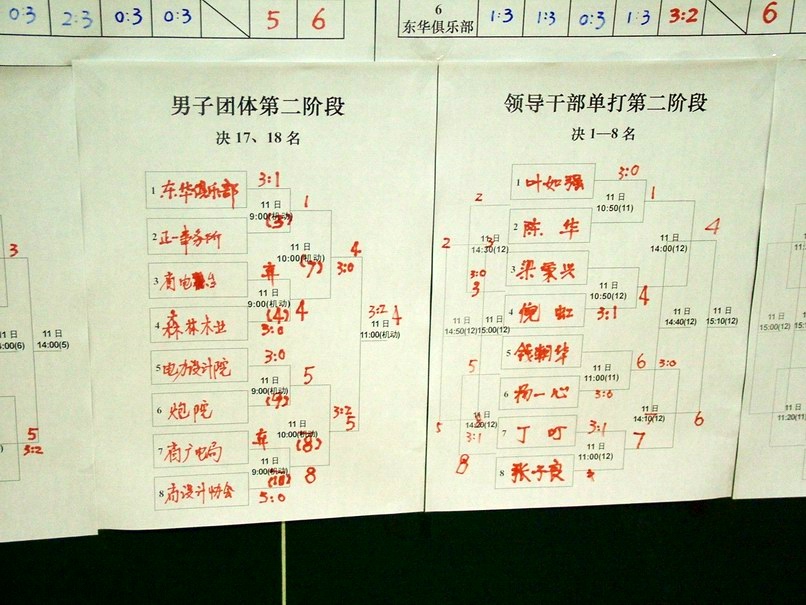 0:3 2:3 0:3 0:3 5 6
6
东华俱乐部 1:3 1:3 0:3 1:3 3:2 6
男子团体第二阶段
决 17、18 名
1 东华俱乐部 3:1
11 日
9:00(机动)
1
2 正一事务所 (3)
11 日
10:00(机动)
4
3:0
3 弃 (7)
11 日
9:00(机动)
4 森林木业 (4) 4
3:0
3:2 4
11 日
11:00(机动)
5 电力设计院 3:0
11 日
9:00(机动)
5
6 炮院 (9)
11 日
10:00(机动)
3:2
5
7 省广电局 弃 (8)
11 日
9:00(机动)
8 省设计协会 (10) 8
5:0
领导干部单打第二阶段
决 1—8 名
1 叶如强 3:0
11 日
10:50(11)
1
2 陈 华
11 日
14:00(12)
4
3 梁秉兴
11 日
10:50(12)
4
4 倪 虹 3:1
11 日
14:40(12)
11 日
15:10(12)
5 钱朝华
11 日
11:00(11)
6 3:0
6 杨一心 3:0
11 日
14:10(12)
6
7 丁 叮 3:1
11 日
11:00(12)
7
8 张子良
2
2 3
11 日
14:30(12)
3:0
3
11 日
14:50(12)
11 日
15:00(12)
5
5
11 日
14:20(12)
3:1
8
3
11 日
14:00(5)
5
3:2